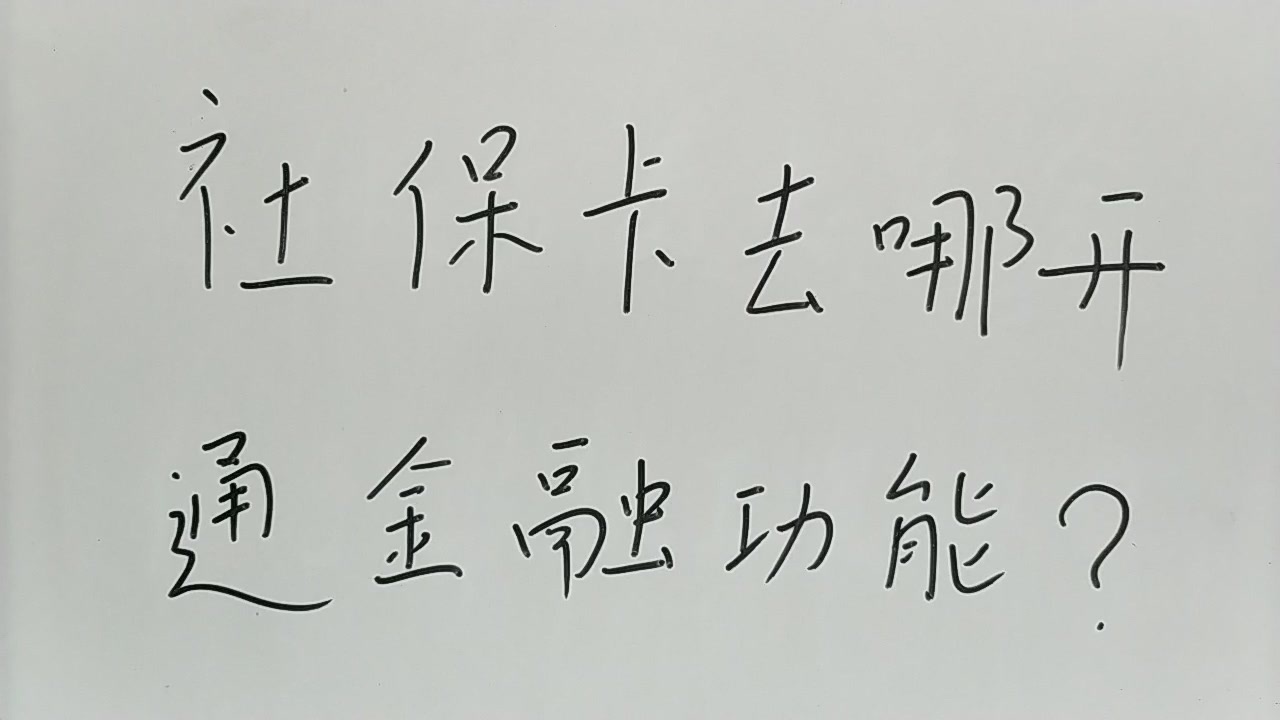 社保卡去哪开
通金融功能?